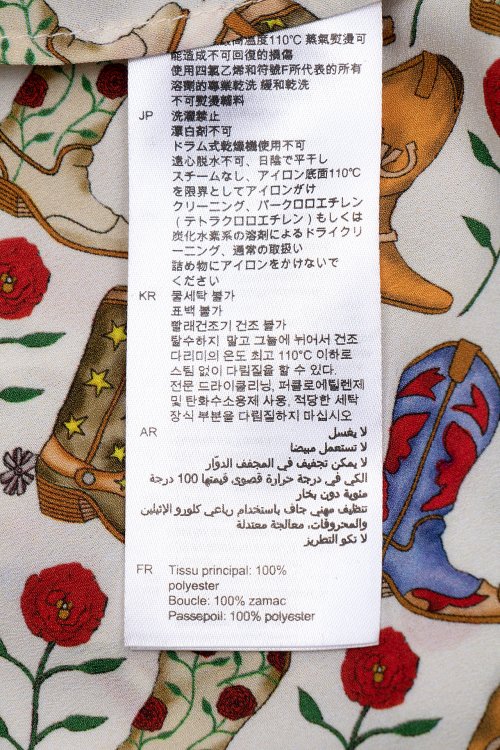 最高溫度110℃ 蒸氣熨燙可
能造成不可回復的損傷
使用四氯乙烯和符號F所代表的所有
溶劑的專業乾洗 緩和乾洗
不可熨燙輔料
JP 洗濯禁止
漂白剤不可
ドラム式乾燥機使用不可
遠心脱水不可、日陰で平干し
スチームなし、アイロン底面110℃
を限界としてアイロンがけ
クリーニング、パークロロエチレン
(テトラクロロエチレン)もしくは
炭化水素系の溶剤によるドライクリ
ーニング、通常の取扱い
詰め物にアイロンをかけないで
ください
KR 물세탁 불가
표백 불가
빨래건조기 건조 불가
탈수하지 말고 그늘에 뉘어서 건조
다리미의 온도 최고 110°C 이하로
스팀 없이 다림질을 할 수 있다.
전문 드라이클리닝, 퍼클로에틸렌제
및 탄화수소용제 사용, 적당한 세탁
장식 부분을 다림질하지 마십시오
AR لا يغسل
لا تستعمل مبيضا
لا يمكن تجفيف في المجفف الدوّار
الكي في درجة حرارة قصوى قيمتها 100 درجة
مئوية دون بخار
تنظيف مهني جاف باستخدام رباعي كلورو الإثيلين
والمحروقات، معالجة معتدلة
لا تكو التطريز
FR Tissu principal: 100%
polyester
Boucle: 100% zamac
Passepoil: 100% polyester